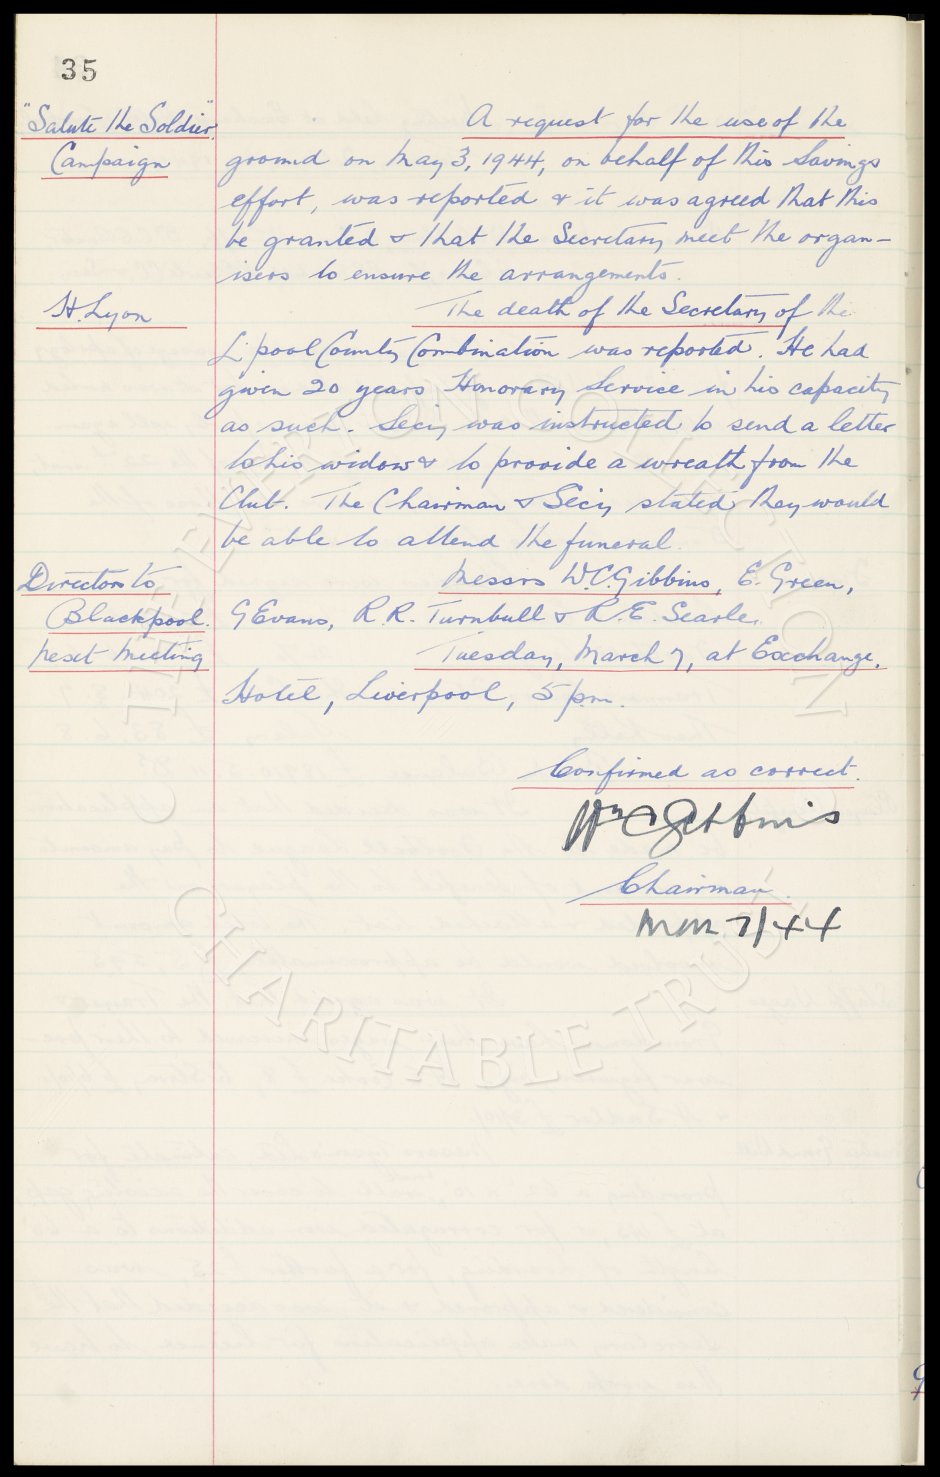 35
"Salute the Soldier"
Campaign
A request for the use of the
ground on May 3, 1944, on behalf of this Savings
effort, was reported & it was agreed that this
be granted & that the Secretary meet the organ-
isers to ensure the arrangements.
H. Lyon
The death of the Secretary of the
L'pool County Combination was reported. He had
given 20 years Honorary Service in his capacity
as such. Secy was instructed to send a letter
to his widow & to provide a wreath from the
Club. The Chairman & Secy stated they would
be able to attend the funeral.
Directors to
Blackpool.
Messrs W.C. Gibbins, E. Green,
G Evans, R.R. Turnbull & R.E. Searle.
next meeting
Tuesday, March 7, at Exchange
Hotel, Liverpool, 5 pm.
Confirmed as correct.
Wm C Gibbins
Chairman.
Mar 7/44
THE EVERTON COLLECTION
CHARITABLE TRUST